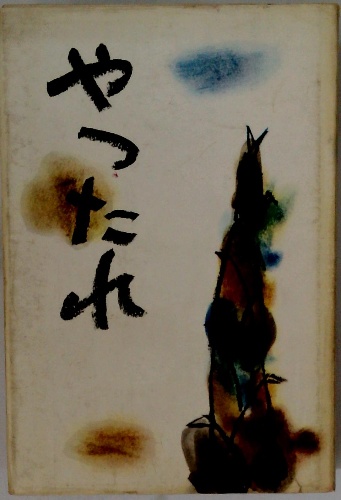 やつたれ